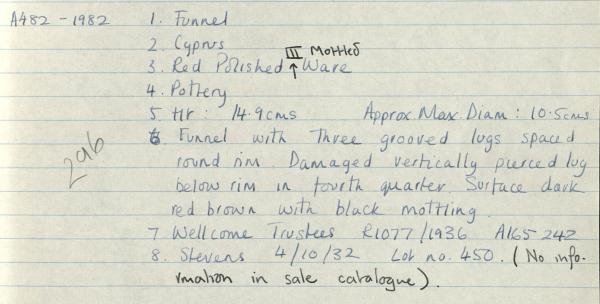 A482 - 1982
1. Funnel
2. Cyprus
III Mottled
3. Red Polished ↑ Ware
4. Pottery
5. Ht : 14.9cms Approx Max. Diam : 10.5cms
6 Funnel with three grooved lugs spaced
round rim. Damaged vertically pierced lug
below rim in fourth quarter. Surface dark
red brown with black mottling.
296
7 Wellcome Trustees R1077/1936 A165242
8. Stevens 4/10/32 Lot no. 450. (No info-
rmation in sale catalogue).